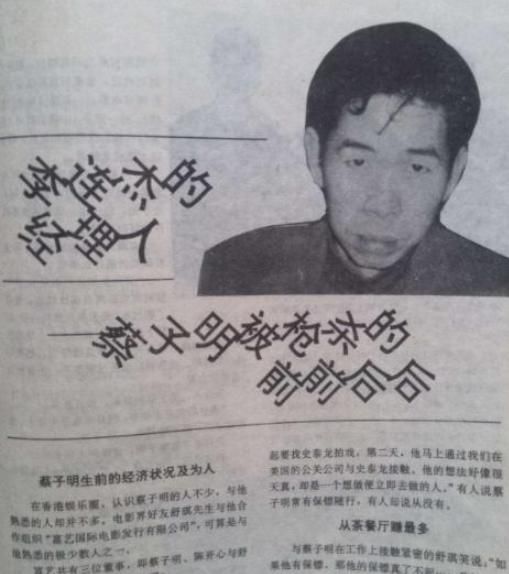 李连杰的
经理人
——蔡子明被枪杀的
前前后后
蔡子明生前的经济状况及为人
在香港娱乐圈,认识蔡子明的人不少,与他
熟悉的人却并不多。电影界好友舒琪先生与他合
作组织“富艺国际电影发行有限公司”,可算是与
他熟悉的极少数人之一。
富艺共有三位董事,即蔡子明、陈开心与舒
起要找史泰龙拍戏,第二天,他马上通过我们在
美国的公关公司与史泰龙接触。他的想法好像很
天真,却是一个想做便立即去做的人。”有人说蔡
子明常有保镖随行,有人却说从没有。
从茶餐厅赚最多
与蔡子明在工作上接触紧密的舒琪笑说,“如
果他有保镖,那他的保镖真了不